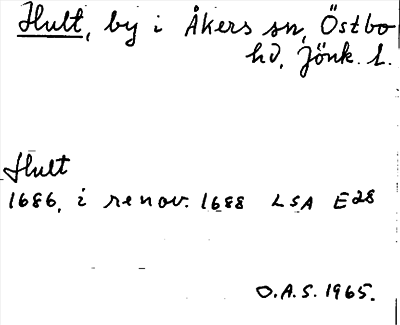 Hult, by i Åkers sn, Östbo
hd, Jönk. l.
Hult
1686, i renov. 1688 LSA E28
O.A.S. 1965.